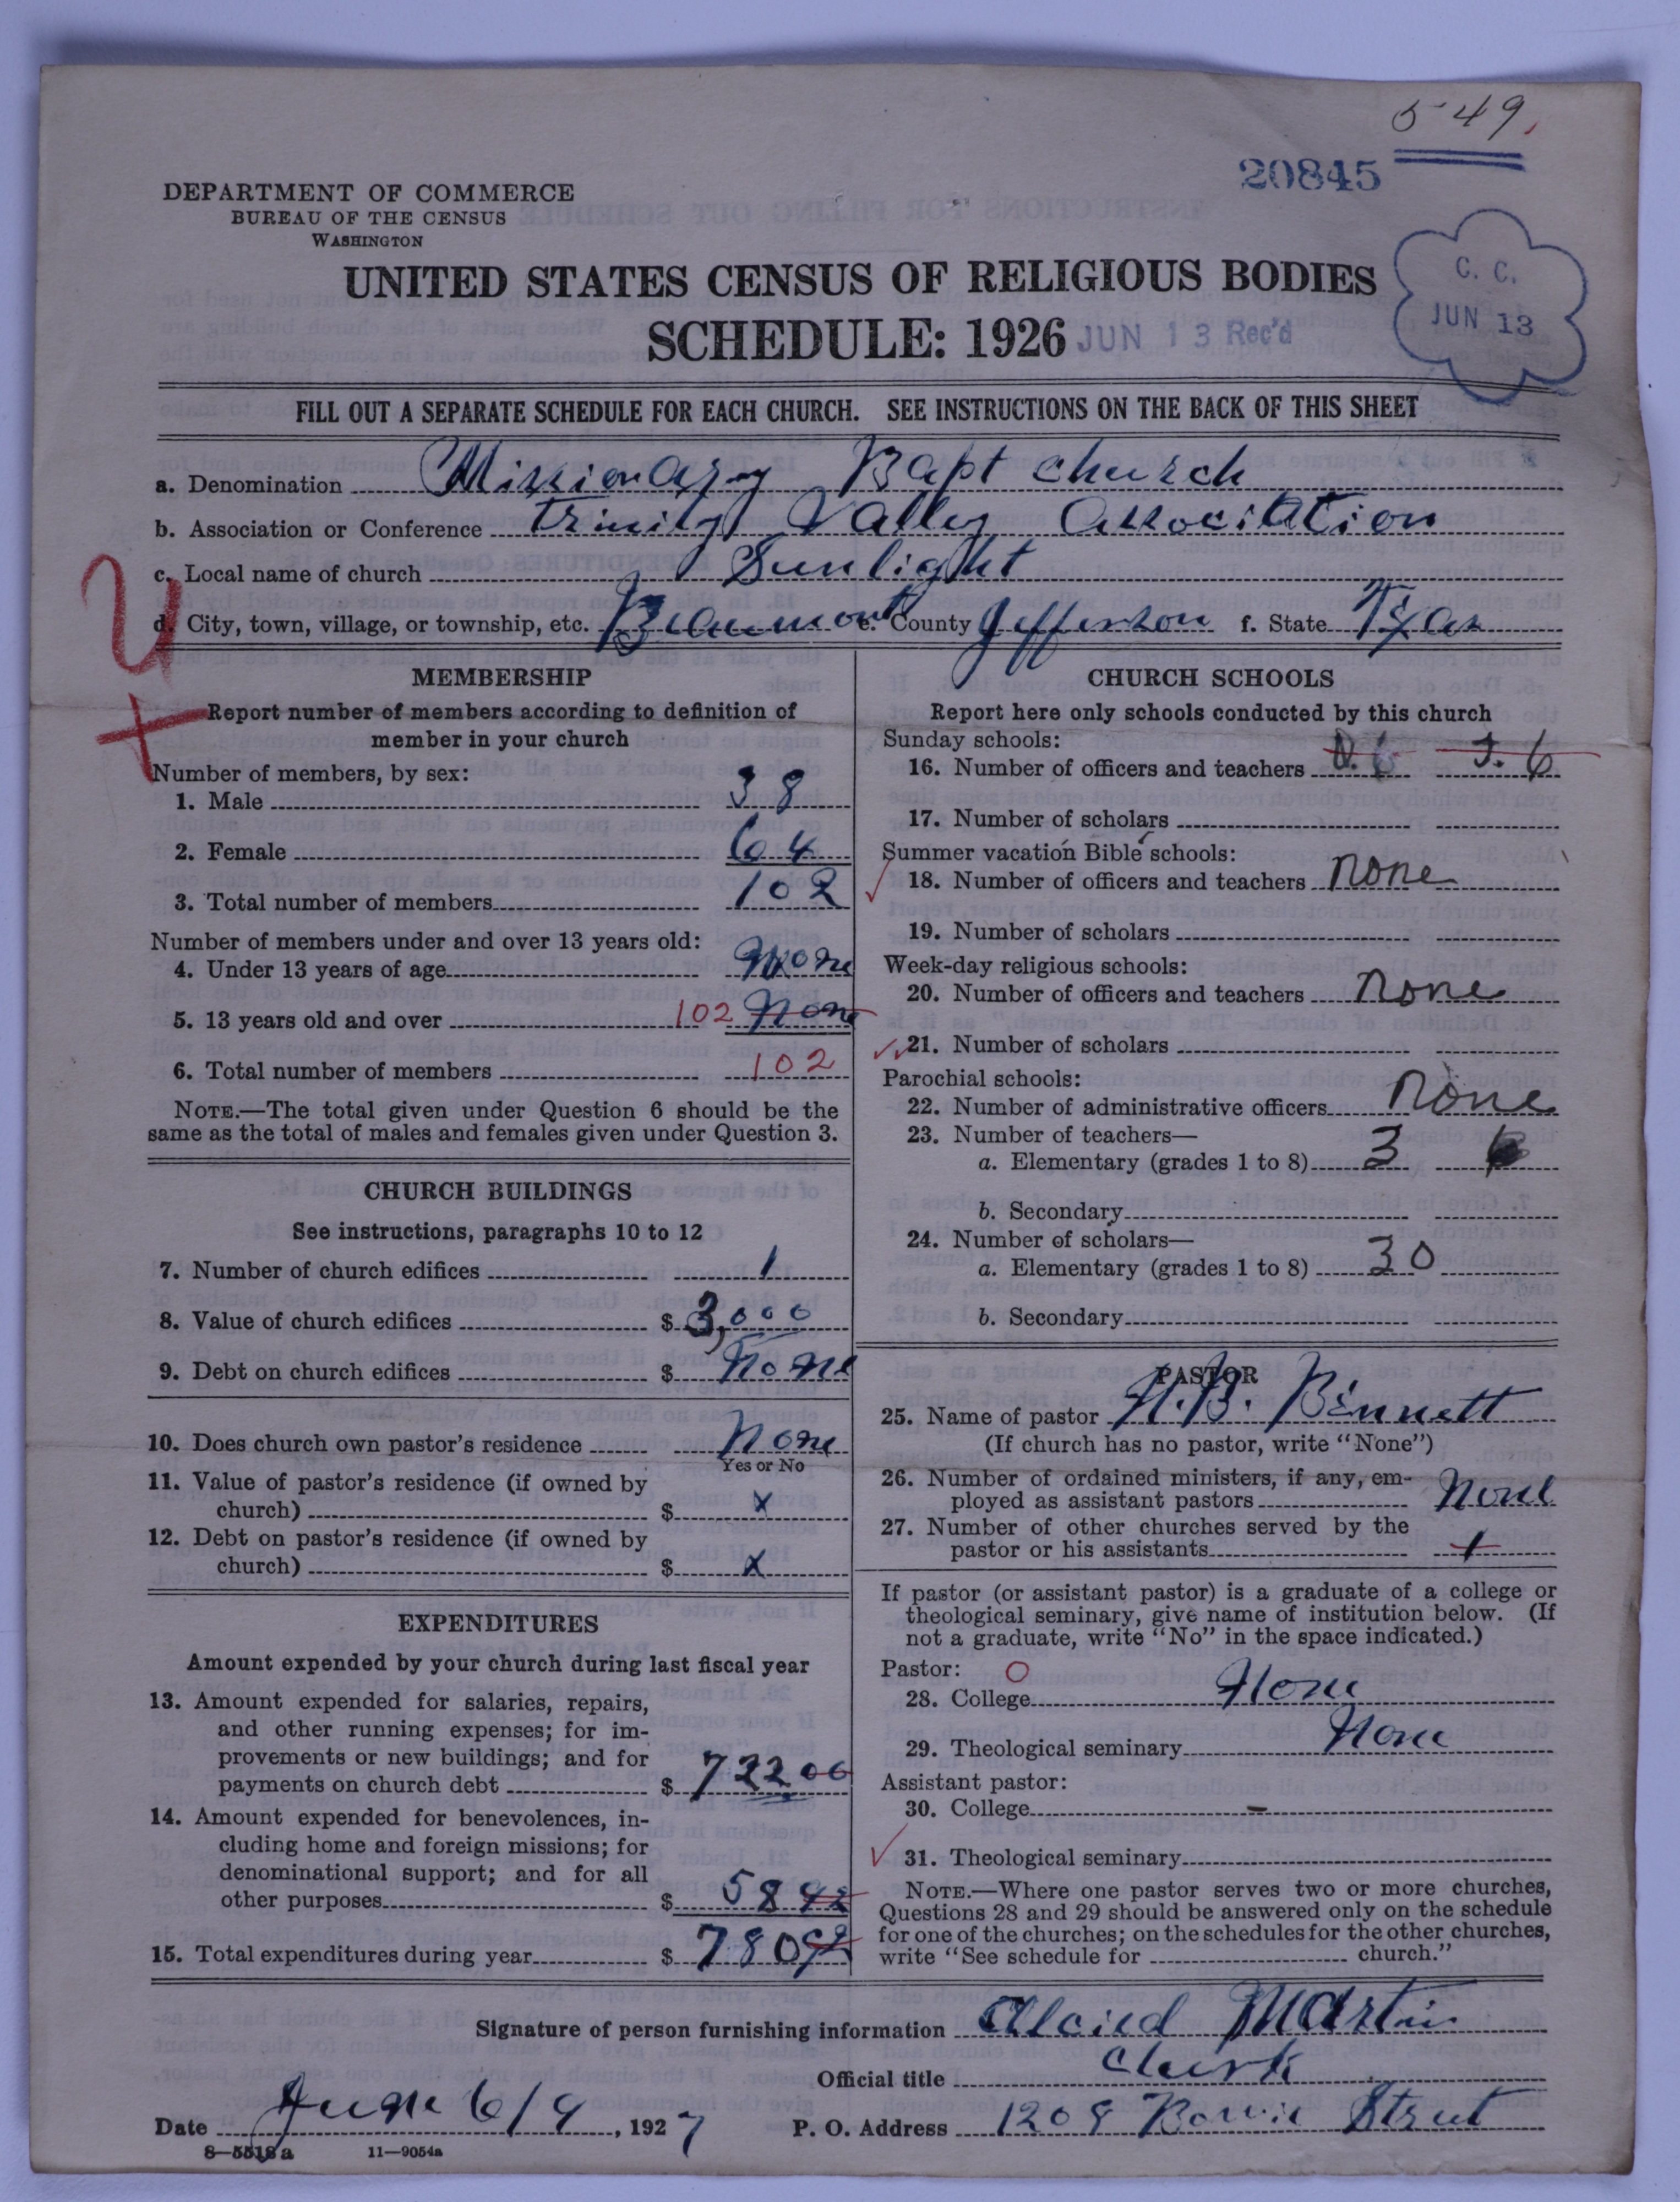 549.
20845
DEPARTMENT OF COMMERCE
BUREAU OF THE CENSUS
WASHINGTON
UNITED STATES CENSUS OF RELIGIOUS BODIES
SCHEDULE: 1926
JUN 13 Rec'd
C. C.
JUN 13
FILL OUT A SEPARATE SCHEDULE FOR EACH CHURCH. SEE INSTRUCTIONS ON THE BACK OF THIS SHEET
a. Denomination Missionary Bapt church
b. Association or Conference Trinity Valley Association
c. Local name of church Sunlight
d. City, town, village, or township, etc. Beaumont e. County Jefferson f. State Texas
MEMBERSHIP
Report number of members according to definition of
member in your church
Number of members, by sex:
1. Male 38
2. Female 64
3. Total number of members 102
Number of members under and over 13 years old:
4. Under 13 years of age None
5. 13 years old and over 102 None
6. Total number of members 102
NOTE.—The total given under Question 6 should be the
same as the total of males and females given under Question 3.
CHURCH BUILDINGS
See instructions, paragraphs 10 to 12
7. Number of church edifices 1
8. Value of church edifices $ 3,000
9. Debt on church edifices $ None
10. Does church own pastor's residence None
Yes or No
11. Value of pastor's residence (if owned by
church) $ x
12. Debt on pastor's residence (if owned by
church) $ x
EXPENDITURES
Amount expended by your church during last fiscal year
13. Amount expended for salaries, repairs,
and other running expenses; for im-
provements or new buildings; and for
payments on church debt $ 722 00
14. Amount expended for benevolences, in-
cluding home and foreign missions; for
denominational support; and for all
other purposes $ 58 92
15. Total expenditures during year $ 780 92
CHURCH SCHOOLS
Report here only schools conducted by this church
Sunday schools:
16. Number of officers and teachers O. 6 T. 6
17. Number of scholars
Summer vacation Bible schools:
18. Number of officers and teachers none
19. Number of scholars
Week-day religious schools:
20. Number of officers and teachers none
21. Number of scholars
Parochial schools:
22. Number of administrative officers None
23. Number of teachers—
a. Elementary (grades 1 to 8) 3 6
b. Secondary
24. Number of scholars—
a. Elementary (grades 1 to 8) 30
b. Secondary
PASTOR
25. Name of pastor N. B. Bennett
(If church has no pastor, write "None")
26. Number of ordained ministers, if any, em-
ployed as assistant pastors None
27. Number of other churches served by the
pastor or his assistants 1
If pastor (or assistant pastor) is a graduate of a college or
theological seminary, give name of institution below. (If
not a graduate, write "No" in the space indicated.)
Pastor: O
28. College None
29. Theological seminary None
Assistant pastor:
30. College -
31. Theological seminary
NOTE.—Where one pastor serves two or more churches,
Questions 28 and 29 should be answered only on the schedule
for one of the churches; on the schedules for the other churches,
write "See schedule for church."
Signature of person furnishing information Alcied Martin
Official title Clerk
Date June 6/9, 1927 P. O. Address 1209 Bowie Street
8—5518a 11—9054a